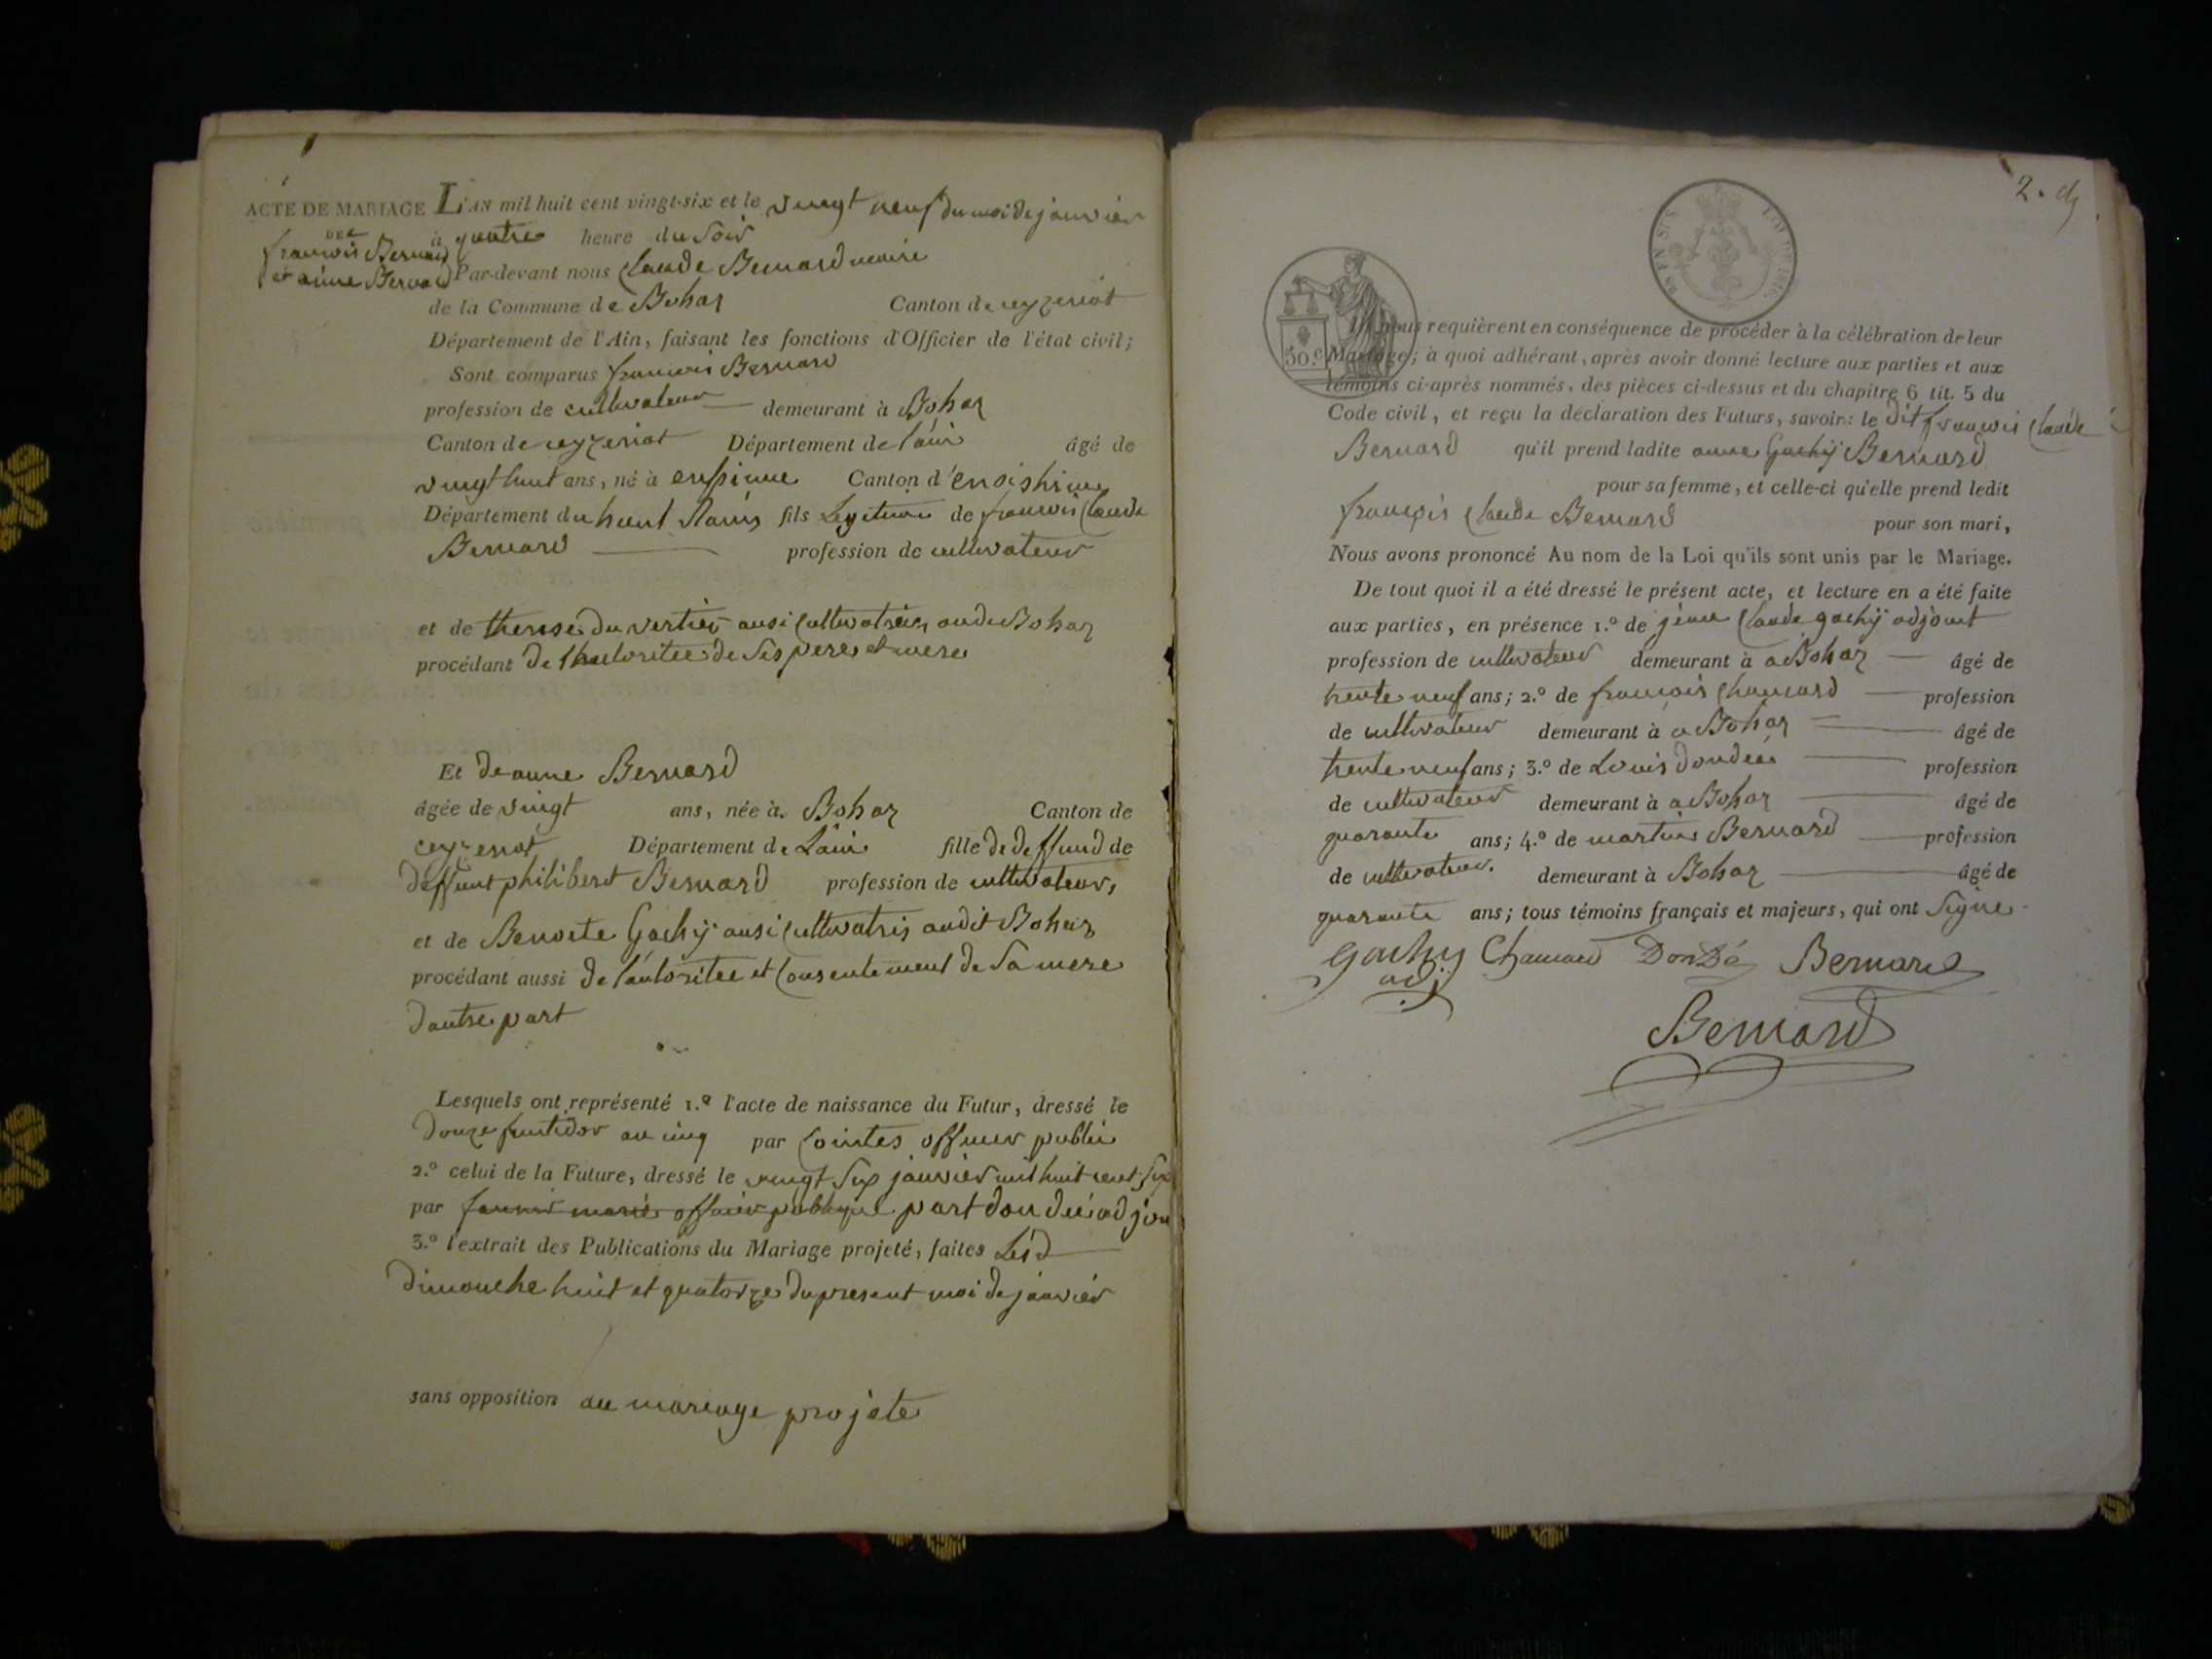 ACTE DE MARIAGE L'AN mil huit cent vingt-six et le vingt neuf du moi de janvier
DE
françois Bernard
et anne Bernard
à quatre heure du soir
Par-devant nous Claude Bernard maire
de la Commune de Bohaz Canton de ceyzeriat
Département de l'Ain, faisant les fonctions d'Officier de l'état civil;
Sont comparus françois Bernard
profession de cultivateur demeurant à Bohaz
Canton de ceyzeriat Département de l'ain âgé de
vingt huit ans, né à Canton d'
Département du haut Rains fils Legitime de françois Claude
Bernard profession de cultivateur
et de therese du vertier ausi Cultivatrice audi Bohaz
procédant de lhautoritee de ses pere et mere
Et de anne Bernard
âgée de vingt ans, née à Bohaz Canton de
ceyzeriat Département de Lain fille de deffund de
deffunt philibert Bernard profession de cultivateur,
et de Benoite Gachÿ ausi Cultivatris audit Bohaz
procédant aussi de l'autoritee et Consentement de sa mere
dautre part
Lesquels ont représenté 1.º l'acte de naissance du Futur, dressé le
douze fruitidor an cinq par Cointes officier public
2.º celui de la Future, dressé le vingt six janvier mil huit cent six
par officier publique part dondéé adjoin
3.º l'extrait des Publications du Mariage projeté, faites Les d
dimanche huit et quatorze du present moi de janvier
sans opposition au mariage projete
2.
50.c
Ils nous requièrent en conséquence de procéder à la célébration de leur
Mariage; à quoi adhérant, après avoir donné lecture aux parties et aux
témoins ci-après nommés, des pièces ci-dessus et du chapitre 6 tit. 5 du
Code civil, et reçu la déclaration des Futurs, savoir: le dit françois Claude
Bernard qu'il prend ladite anne Gachÿ Bernard
pour sa femme, et celle-ci qu'elle prend ledit
françois Claude Bernard pour son mari,
Nous avons prononcé Au nom de la Loi qu'ils sont unis par le Mariage.
De tout quoi il a été dressé le présent acte, et lecture en a été faite
aux parties, en présence 1.º de Claude gachÿ adjoint
profession de cultivateur demeurant à a Bohaz âgé de
trente neuf ans; 2.º de françois Chanard profession
de cultivateur demeurant à a Bohaz âgé de
trente neuf ans; 3.º de Louis dondéé profession
de cultivateur demeurant à a Bohaz âgé de
quarante ans; 4.º de martin Bernard profession
de cultivateur. demeurant à Bohaz âgé de
quarante ans; tous témoins français et majeurs, qui ont signe
Gachy Chanard Dondé Bernard
adj
Bernard